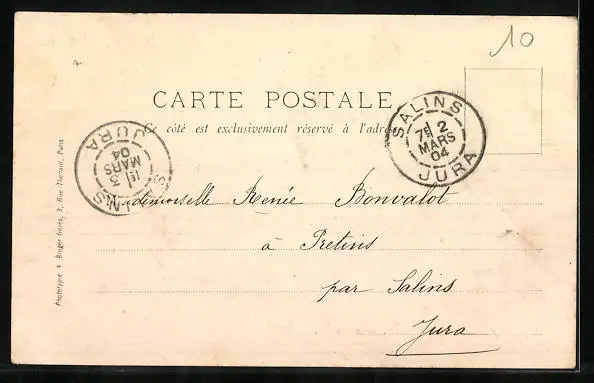 10
CARTE POSTALE
Ce côté est exclusivement réservé à l'adre
SALINS
7E 2
MARS
04
JURA
SALINS
1E 3
MARS
04
JURA
Mademoiselle Renée Bonvalot
à Pretins
par Salins
Jura
Phototypie Berger frères, 9, Rue Thénard, Paris